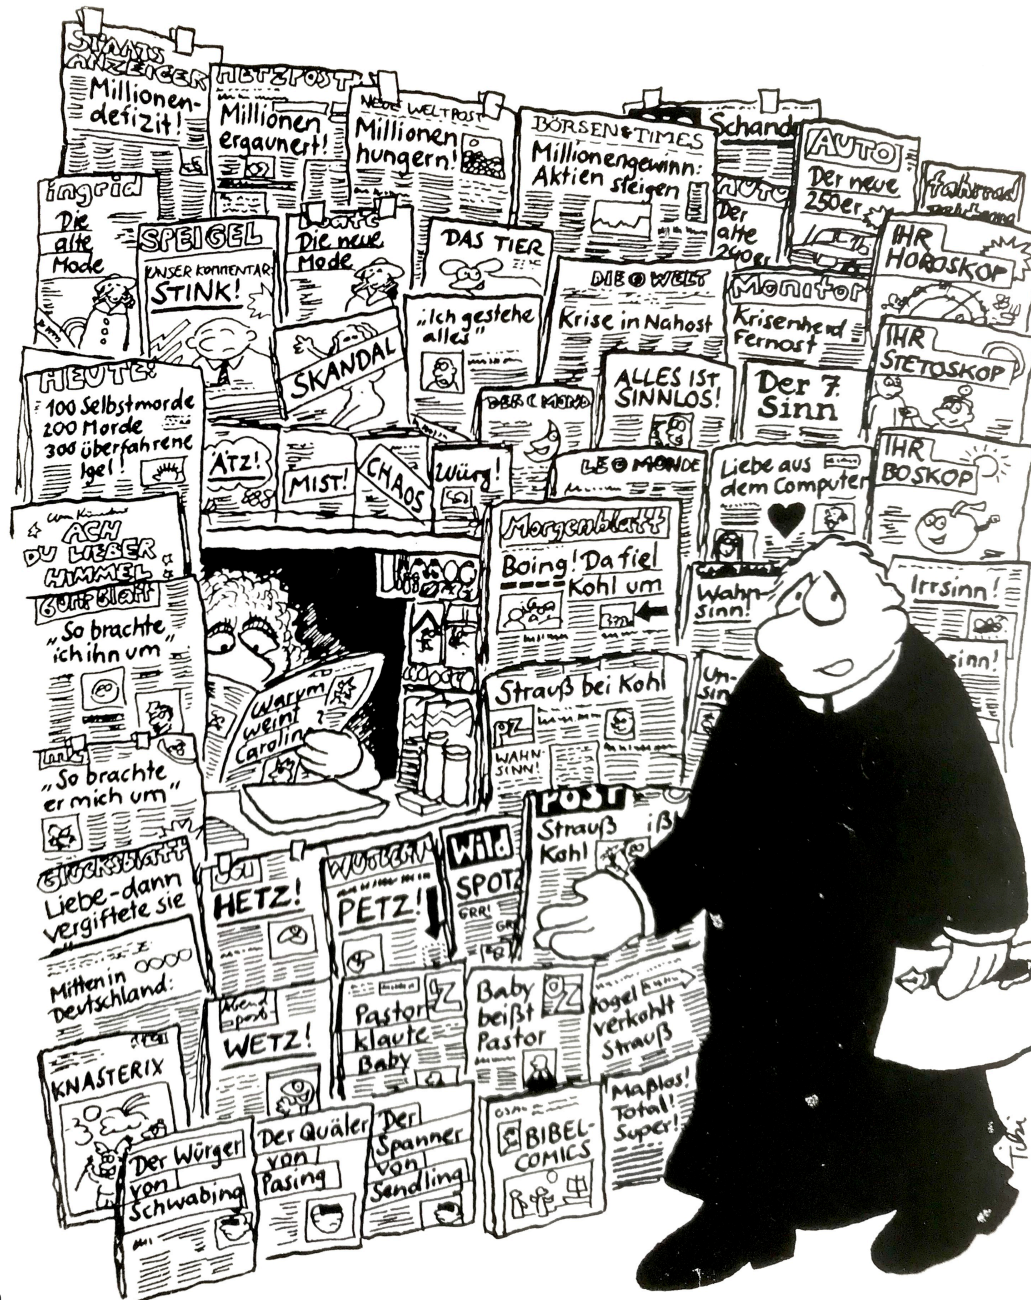 STAATS
ANZEIGER
Millionen-
defizit!
HETZPOST
Millionen
ergaunert!
NEUE WELTPOST
Millionen
hungern!
BÖRSEN & TIMES
Millionengewinn:
Aktien steigen
Schande
AUTO
Der neue
250er
AUTO
Der
alte
240er
fahrrad
ingrid
Die
alte
Mode
SPEIGEL
UNSER KOMMENTAR:
STINK!
Die neue
Mode
DAS TIER
DIE WELT
Krise in Nahost
Monitor
Krisenherd
Fernost
IHR
HOROSKOP
SKANDAL
„Ich gestehe
alles"
IHR
STETOSKOP
HEUTE:
100 Selbstmorde
200 Morde
300 überfahrene
Igel!
DER MOND
ALLES IST
SINNLOS!
Der 7.
Sinn
ÄTZ!
MIST!
CHAOS
Würg!
LE MONDE
Liebe aus
dem Computer
IHR
BOSKOP
ACH
DU LIEBER
HIMMEL
Morgenblatt
Boing! Da fiel
Kohl um
Wahn-
sinn!
Irrsinn!
„So brachte
ich ihn um"
Warum
weint
Carolin
?
Strauß bei Kohl
OZ
WAHN-
SINN!
Un-
sin
sinn!
„So brachte
er mich um"
POST
Strauß ißt
Kohl
GLÜCKSBLATT
Liebe-dann
vergiftete sie
HETZ!
PETZ!
Wild
SPOTZ
GRR!
GR
Mitten in
Deutschland:
Abend
post
WETZ!
Pastor
klaute
Baby
OZ
Baby
beißt
Pastor
OZ
Vogel
verkohlt
Strauß
KNASTERIX
Maßlos!
Total!
Super!
Der Würger
von
Schwabing
Der Quäler
von
Pasing
Der
Spanner
von
Sendling
BIBEL-
COMICS
Tibi